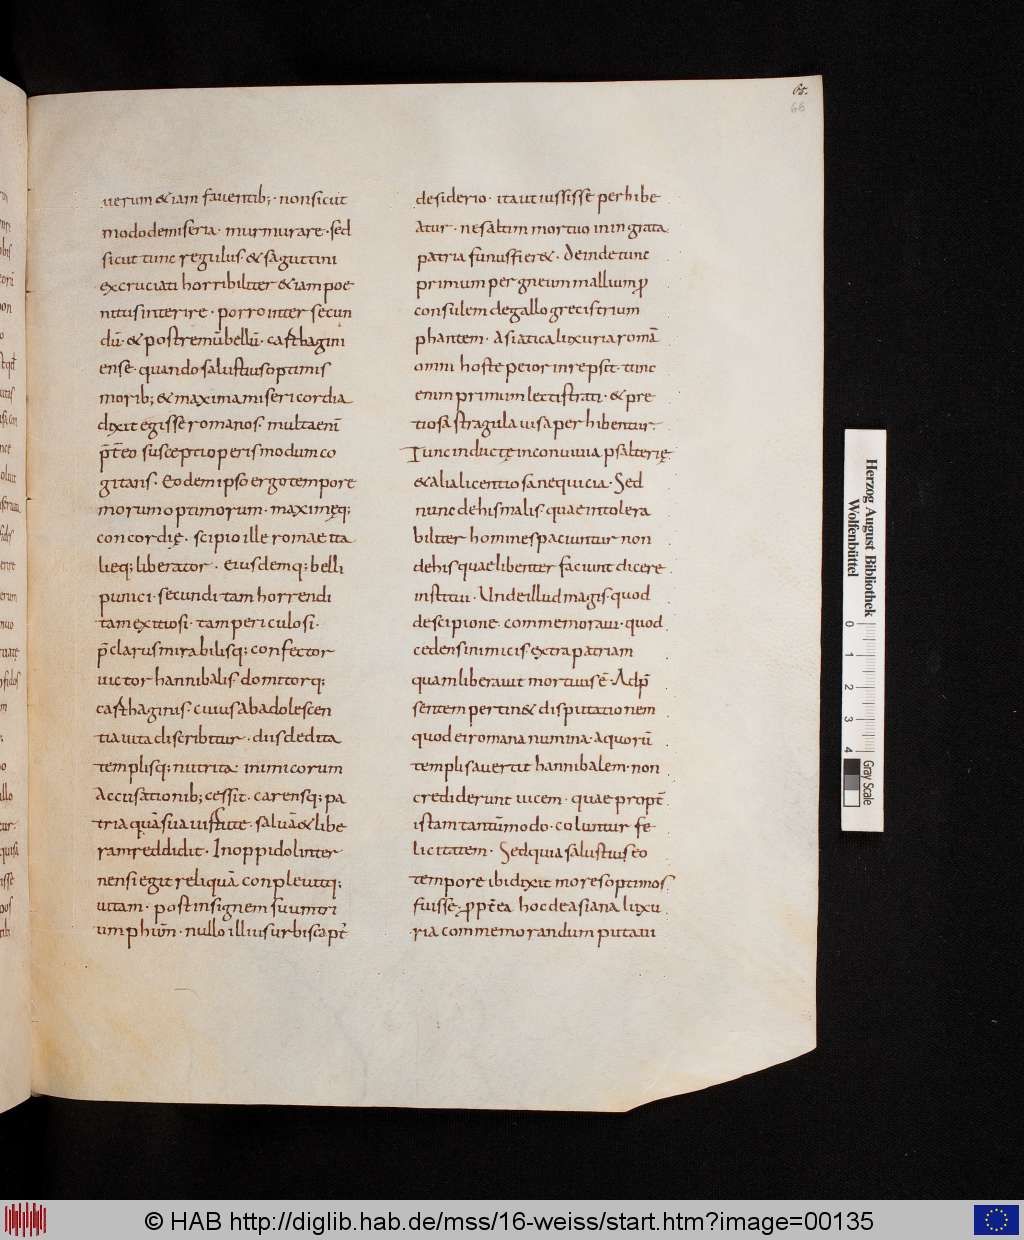 65.
66
uerum & iam fauentib; · non sicut
modo demiseria · murmurare · sed
sicut tunc regulus & saguntini
excruciati horribiliter & iam poe
nitus interire · porro inter secun
dū · & postremū bellū · carthagini
ense · quando salustius optimis
morib; & maxima misericordia
dixit egisse romanos · multa enī
p̄t̄eo suscepti operis modum co
gitans · Eodem ipso ergo tempore
morum optimorum · maximęq;
concordię · scipio ille romae ita
lieq; liberator · eiusdemq; belli
punici · secundi tam horrendi
tam exitiosi · tam periculosi ·
p̄clarus mirabilisq; confector
uictor hannibalis domitorq;
carthaginis · cuius ab adolescen
tia uita discribitur · diis dedita
templisq; nutrita inimicorum
Accusationib; cessit · carensq; pa
tria quā sua uirtute · saluā & libe
ram reddidit · In oppido linter
nensi egit reliquā conpleuitq;
uitam · post insignem suum tri
umphū · nullo illius urbis capt̄
desiderio · ita ut iussisse perhibe
Atur · ne saltim mortuo in ingrata
patria funus fier& · Deinde tunc
primum per gneum mallium p̱
consulem de gallogrecis trium
phantem · Asiatica luxuria romā
omni hoste peior inrepsit · tunc
enim primum lecti strati · & pre
tiosa stragula uisa perhibentur ·
Tunc inductę in conuiuia psalterię
& alia licentiosa nequicia · Sed
nunc de his malis · quae intolera
biliter homines paciuntur non
de his quae libenter faciunt dicere
institui · Unde illud magis · quod
de scipione · commemoraui · quod
cedens inimicis extra patriam
quam liberauit mortuus ē · Ad p̄
sentem pertin& disputationem
quod ei romana numina · a quorū
templis auertit hannibalem · non
crediderunt uicem · quae propt̄
istam tantūmodo · coluntur fe
licitatem · Sed quia salustius eo
tempore ibi dixit mores optimos
fuisse · p̱pt̄ea hoc de asiana luxu
ria commemorandum putaui
Herzog August Bibliothek
Wolfenbüttel
0 1 2 3 4
Gray Scale
© HAB http://diglib.hab.de/mss/16-weiss/start.htm?image=00135